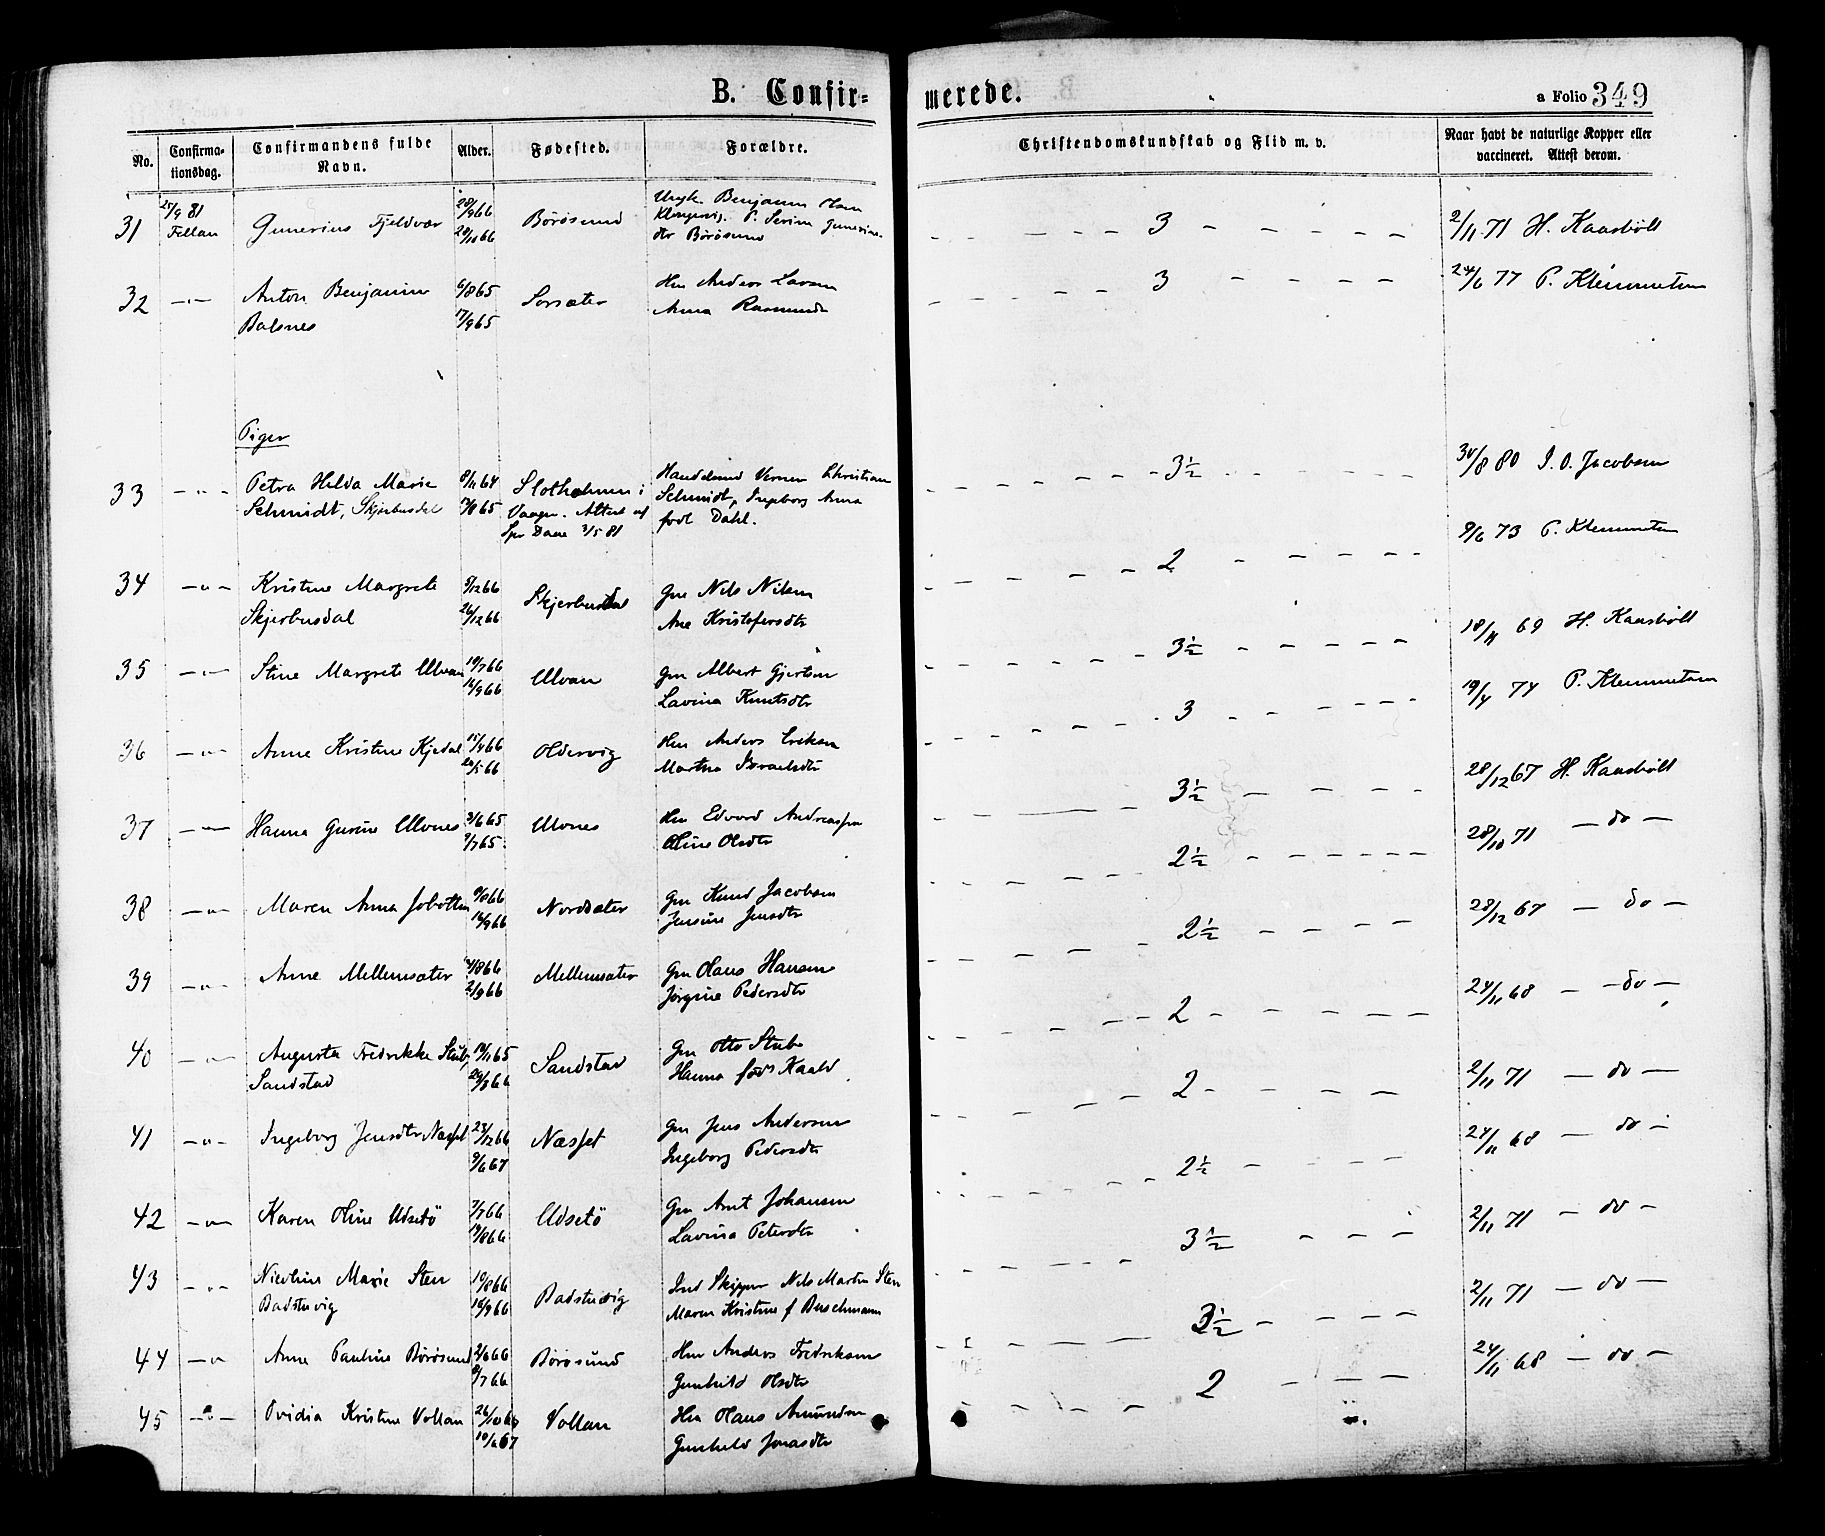 B. Confir-
merede.
a Folio 349
No.
Confirma-
tionsdag.
Confirmandens fulde
Navn.
Alder.
Fødested.
Forældre.
Christendomskundskab og Flid m. v.
Naar havt de naturlige Kopper eller
vaccineret. Attest derom.
31 25/9 81 Gunerius Fjeldvær 28/9 66 Börösund Ungk Benjamin Olsen
Fillan 28/10 66 P. Serine Gunerius-
dtr Börösund
3
2/11 71 H. Kaasböll
32 -"- Anton Benjamin 6/8 65 Sorsæter Hm Anders Larsen
Balsnes 17/9 65 Anna Rasmusdr
3
24/6 77 P. Klemmetsen
Piger
33 -"- Petra Hilda Marie 8/11 64 Slotholmen i Handelsmd Verner Christian
Schmidt, Skjerbusdal 65 Vaagen. Attest af Schmidt, Ingeborg Anna
Spr Daae 3/5 81 født Dahl.
3½
30/8 80 J. O. Jacobsen
34 -"- Kristine Margrete 5/12 66 Skjerbusdal Gm Nils Nilsen
Skjerbusdal 26/12 66 Ane Kristofersdtr
2
9/6 73 P. Klemmetsen
35 -"- Stine Margrete Ulvan 19/7 66 Ulvan Gm Albert Gjertsen
16/9 66 Lavina Knutsdtr
3½
18/11 69 H. Kaasböll
36 -"- Anne Kristine Kjerdal 15/4 66 Oldervig Hm Anders Eriksen
20/5 66 Martha Israelsdtr
3
19/4 74 P. Klemmetsen
37 -"- Hanna Gurine Ulvnes 3/6 65 Ulvnes Hm Edvard Andreassen
9/7 65 Oline Olsdtr
3½
28/12 67 H. Kaasböll
38 -"- Maren Anna Jobotten 9/8 66 Nordsæter Gm Knud Jacobsen
16/9 66 Jensine Jensdtr
2½
28/10 71 - do -
39 -"- Anne Mellemsæter 14/8 66 Mellemsæter Gm Claus Hansen
2/9 66 Jørgine Pedersdtr
2½
28/12 67 - do -
40 -"- Augusta Fredrikke Stub, 14/11 65 Sandstad Gm Otto Stub
Sandstad 20/3 66 Hanna föds Kaald
2
24/11 68 - do -
41 -"- Ingeborg Jensdtr Næsset 23/12 66 Næsset Gm Jens Andersen
9/6 67 Ingeborg Pedersdtr
2
2/11 71 - do -
42 -"- Karen Oline Udsetö 7/7 66 Udsetö Gm Arnt Johansen
19/8 66 Lavina Petersdtr
2½
24/11 68 - do -
43 -"- Nicoline Marie Sten 10/8 66 Badstuvig Ind Skipper Nils Martin Sten
Badstuvig 16/9 66 Maren Kristine f Buschmann
3½
2/11 71 - do -
44 -"- Anne Pauline Börösund 2/6 66 Börösund Hm Anders Fredriksen
8/7 66 Gunhild Olsdtr
3½
2/11 71 - do -
45 -"- Ovidia Kristine Vollan 26/10 66 Vollan Hm Claus Amundsen
10/6 67 Gunhild Jonasdtr
2
24/11 68 - do -